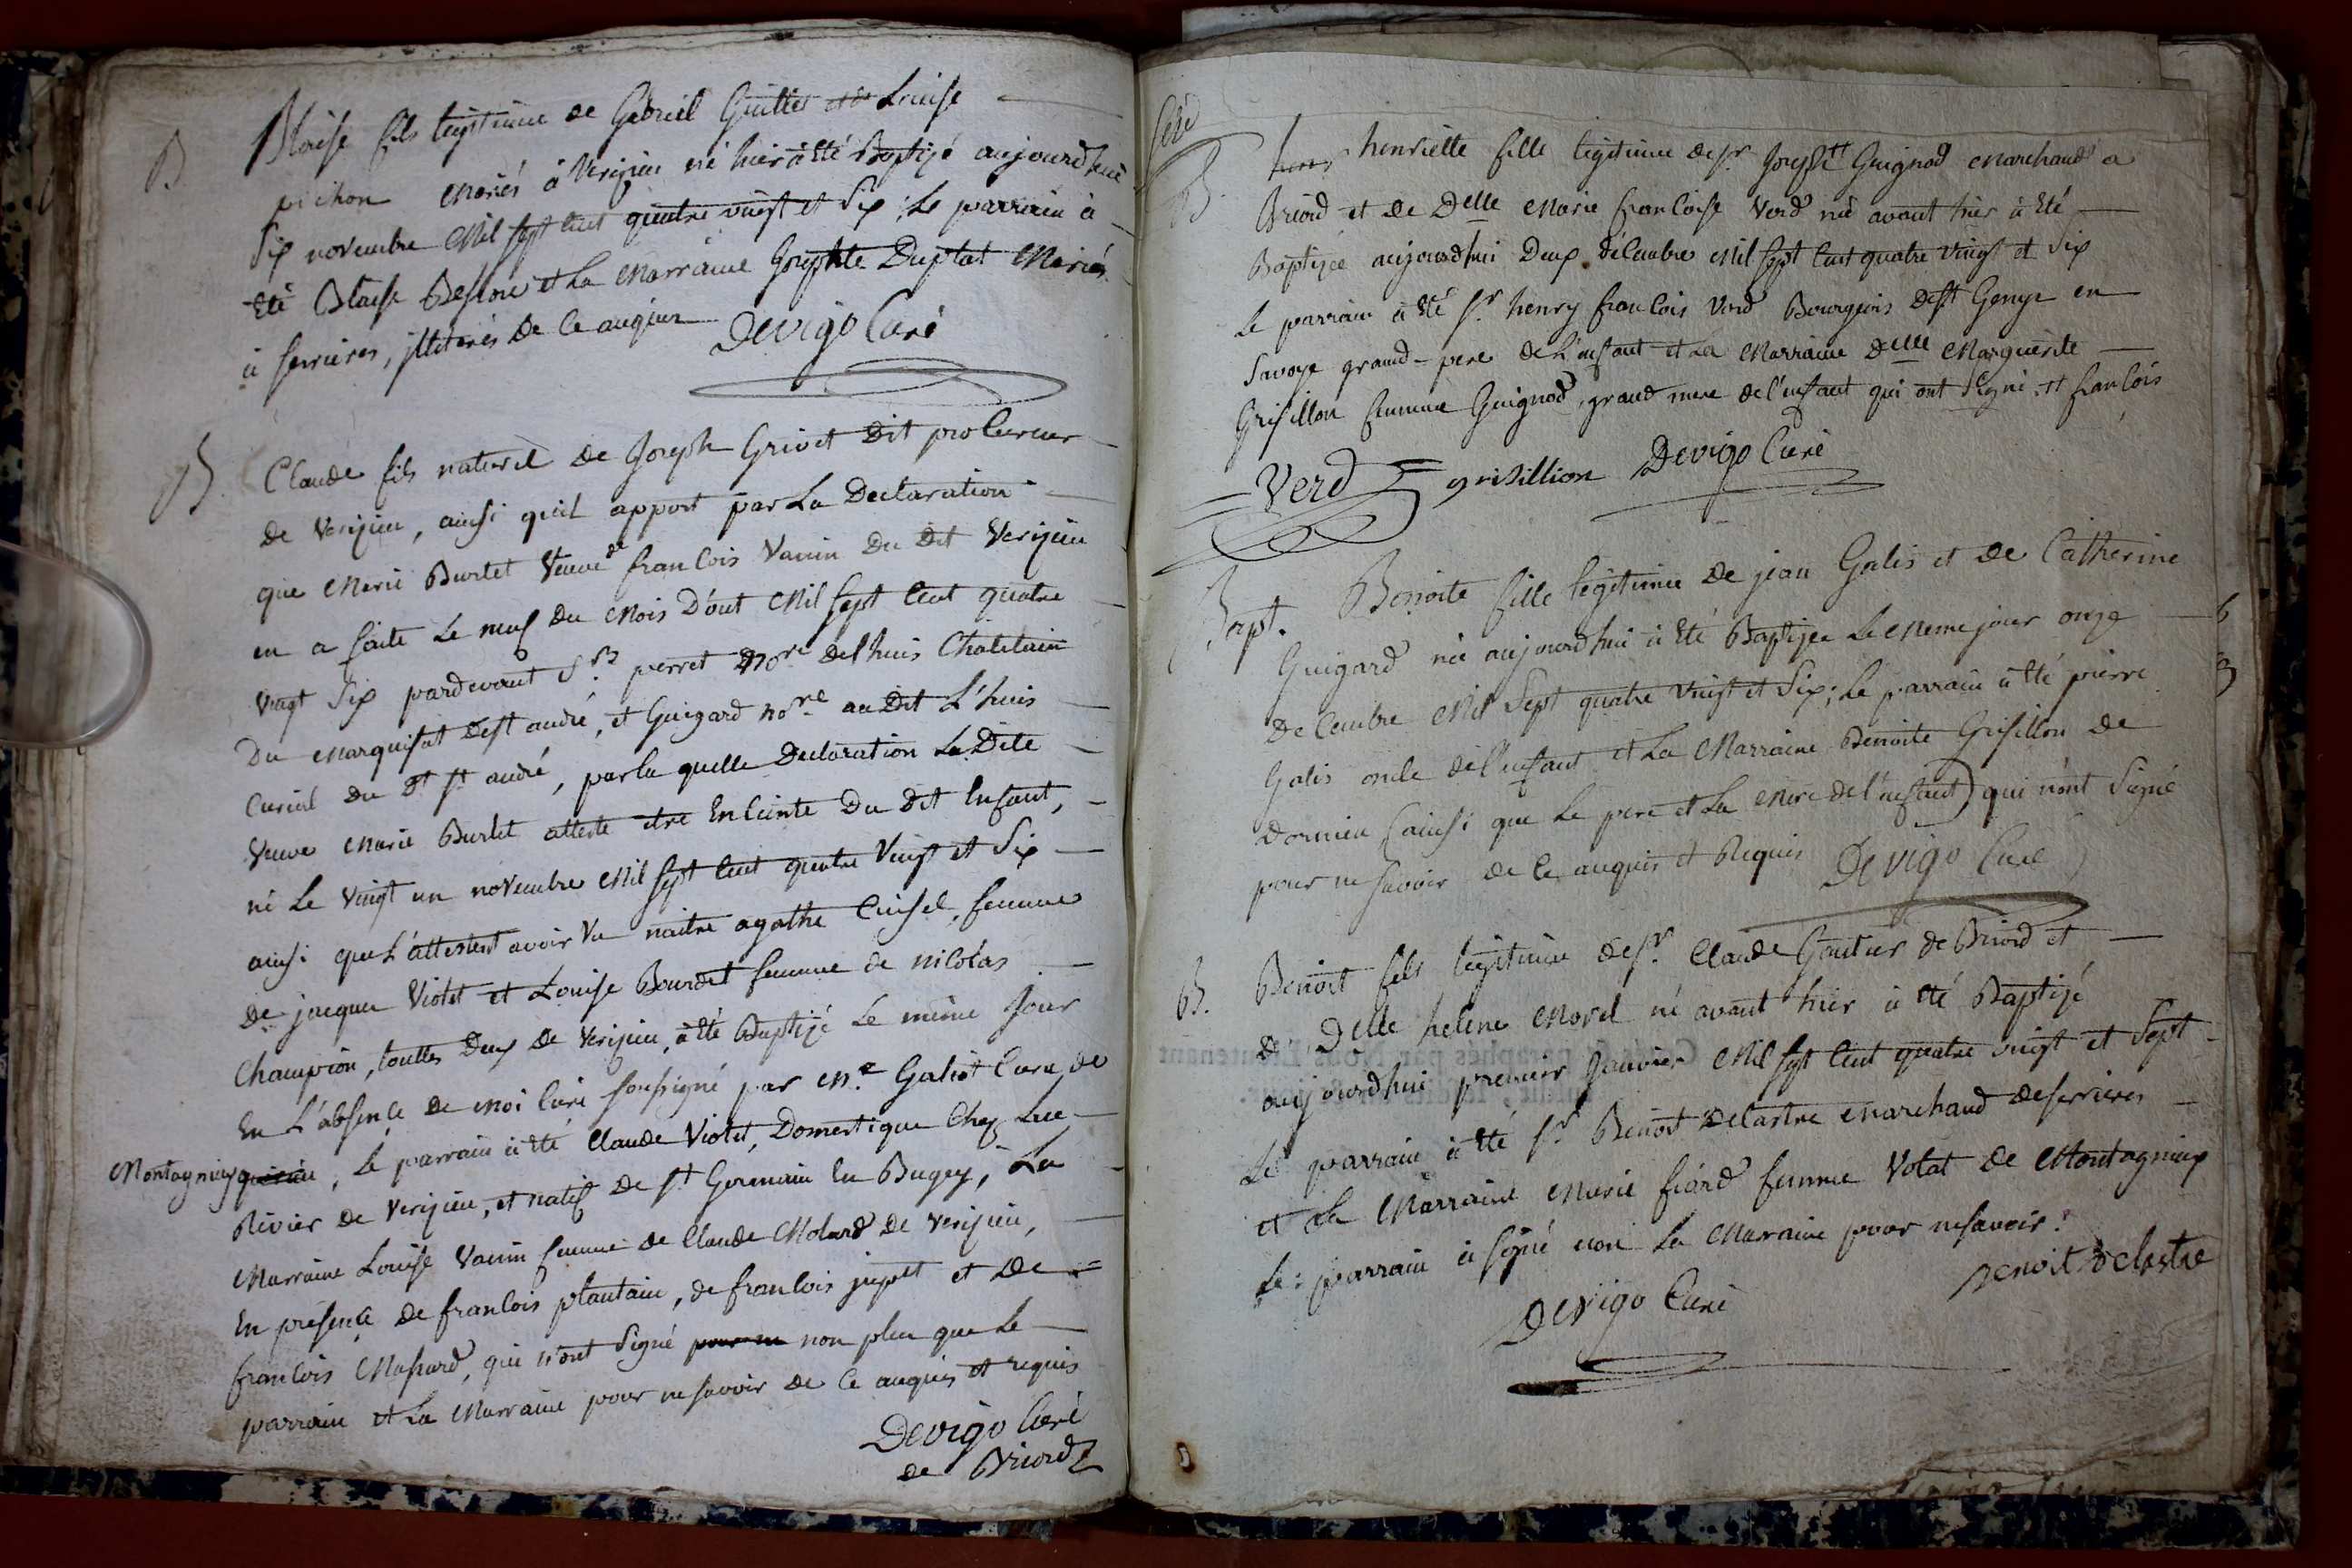 B Blaise fils legitime de Gabriel Guillet et de Louise
pichon Mariés à Verizieu né hier à Eté Baptizé aujourdhui
Six novembre Mil sept cent quatre vingt et Six ; Le parrain à
Eté Blaise Besson et La Marraine Josephte Duplat Mariés
à serrieres, illiterés de ce enquis
Devigo Curé
B. Claude fils naturel de Joseph Grivet dit procureur
de Verizieu, ainsi quil appert par La Declaration
que Marie Burlet Veuve de francois Vanin du dit Verizieu
en a faite Le neuf du Mois D'out Mil sept Cent quatre
vingt Six pardevant Sr. perret Nore delhuis Chatelain
Du Marquisat de st andré, et Guigard nore au Dit L'huis
Curial du dt st andré, par la quelle Declaration La Dite
Veuve Marie Burlet atteste etre Enceinte Du dit Enfant,
né Le vingt un novembre Mil sept Cent quatre Vingt et Six
ainsi que L'attestent avoir Vu naitre agathe Cuisel, femme
De jacque Violet et Louise Bourdet femme de nicolas
Champion, touttes Deux de Verizieu, à Eté Baptizé Le même Jour
En L'absence de Moi Curé soussigné par Mre Galiot Curé de
Montagnieu , Le parrain à Eté Claude Violet, Domestique Chez Luc
Rivier de Verizieu, et natif de st Germain En Bugey, La
Marraine Louise Vanin femme de Claude Molard de Verizieu,
En présence de francois plantain, de francois jupet et De
francois Massard, qui n'ont Signé pour ne non plus que Le
parrain et La Marraine pour ne savoir de ce enquis et requis
Devigo Curé
de Briord
B. henr henriette fille legitime de sr Joseph Guignod Marchand a
Briord et de Delle Marie francoise Verd née avant hier à Eté
Baptizée aujourdhui Deux Décembre Mil sept Cent quatre vingt et Six
Le parrain à Eté sr. henry francois Verd Bourgeois de st Genys en
Savoye grand-pere de L'enfant et La Marraine Delle Marguerite
Grisillon femme Guignod, grand mere de l'enfant qui ont Signé. et francois
Verd grisillion Devigo Curé
Bapt. Benoite fille legitime de jean Galis et de Catherine
Guigard née aujourdhui à Eté Baptizée Le Meme jour onze
Decembre Mil Sept quatre Vingt et Six; Le parrain à Eté pierre
Galis oncle de l'enfant et La Marraine Benoite Grisillon de
Dornieu (ainsi que Le pere et La Mere de l'enfant) qui n'ont Signé
pour ne savoir de ce enquis et Requis Devigo Curé
B. Benoit fils legitime de sr. Claude Gontier de Briord et
de Delle helene Morel né avant hier à été Baptizé
aujourdhui premier Janvier Mil sept Cent quatre vingt et Sept
Le parrain à Eté sr Benoit Delastre Marchand de serrieres
et La Marraine Marie fiard femme Volat de Montagnieux
Le parrain à signé non La Marraine pour ne savoir.
Benoit delastre
Devigo Curé